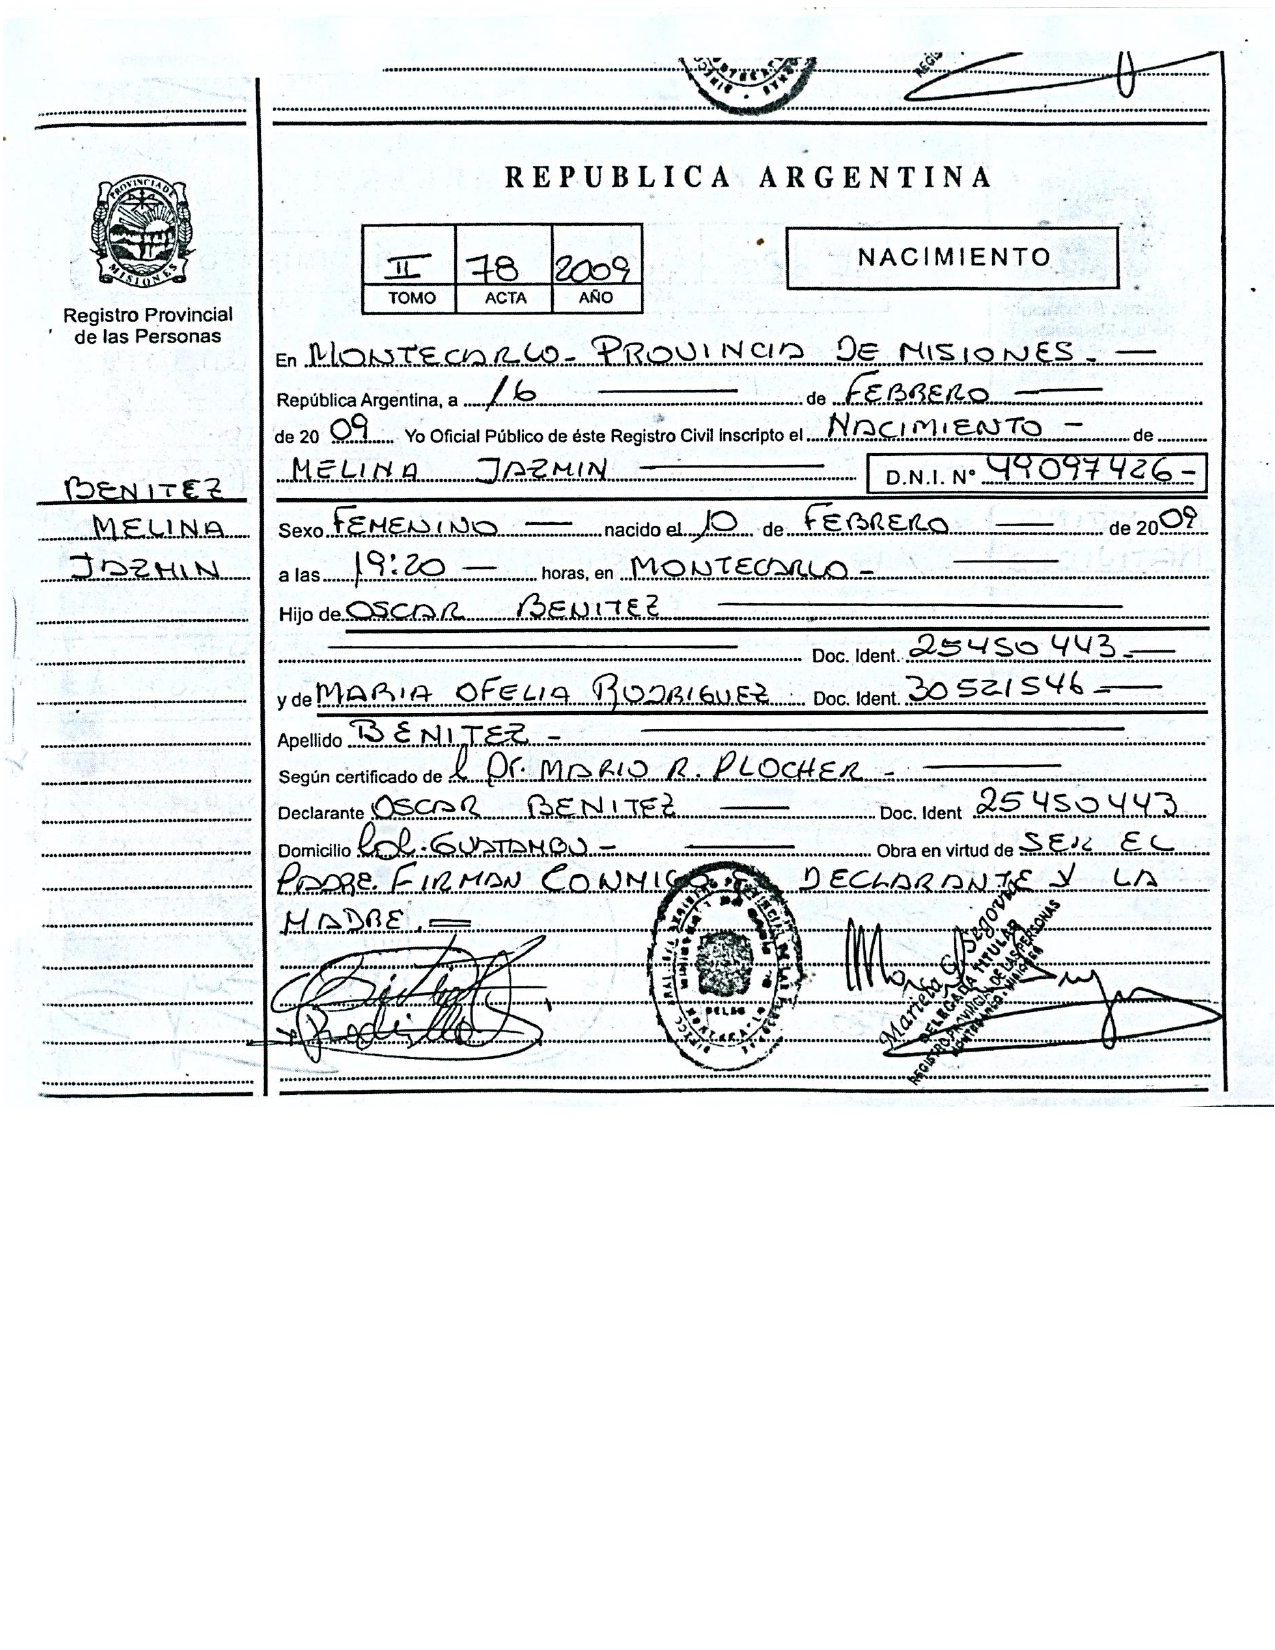 REPUBLICA ARGENTINA
PROVINCIA DE
MISIONES
Registro Provincial
de las Personas
II 78 2009
TOMO ACTA AÑO
NACIMIENTO
En MONTECARLO- PROVINCIA DE MISIONES.
República Argentina, a 16 de FEBRERO
de 2009 Yo Oficial Público de éste Registro Civil Inscripto el NACIMIENTO - de
MELINA JAZMIN D.N.I. N° 49097426-
BENITEZ
MELINA
JAZMIN
Sexo FEMENINO nacido el 10 de FEBRERO de 2009
a las 19:20 horas, en MONTECARLO-
Hijo de OSCAR BENITEZ
Doc. Ident. 25450443.-
y de MARIA OFELIA RODRIGUEZ Doc. Ident. 30521546-
Apellido BENITEZ -
Según certificado de l Dr. MARIO R. PLOCHER -
Declarante OSCAR BENITEZ Doc. Ident 25450443
Domicilio Col. GUATAMBU - Obra en virtud de SER EL
PADRE. FIRMAN CONMIGO DECLARANTE Y LA
MADRE.=
Mariela G. Segovia
DELEGADA TITULAR
REGISTRO PROVINCIAL DE LAS PERSONAS